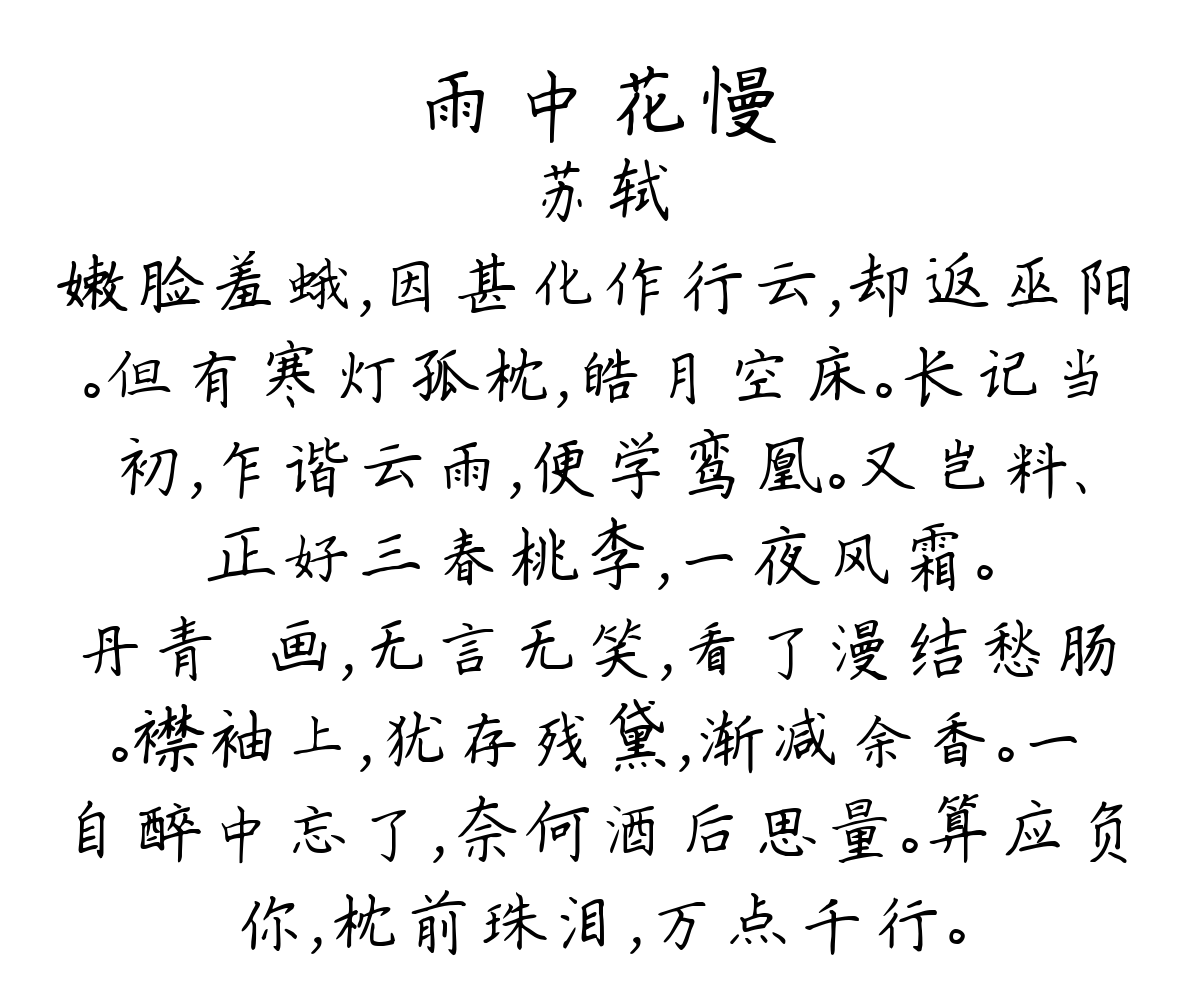 雨中花慢
苏轼
嫩脸羞蛾,因甚化作行云,却返巫阳
。但有寒灯孤枕,皓月空床。长记当
初,乍谐云雨,便学鸾凰。又岂料、
正好三春桃李,一夜风霜。
丹青 画,无言无笑,看了漫结愁肠
。襟袖上,犹存残黛,渐减余香。一
自醉中忘了,奈何酒后思量。算应负
你,枕前珠泪,万点千行。